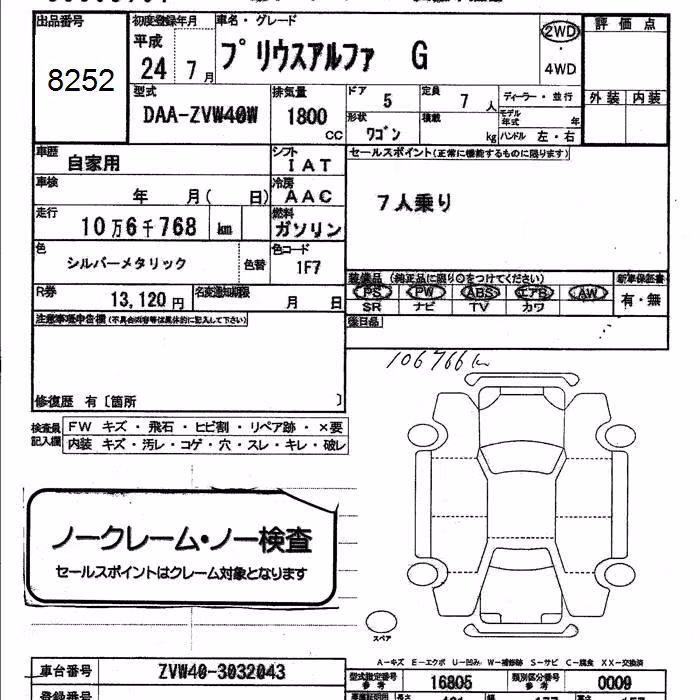 出品番号
8252
初度登録年月
平成
24 7 月
車名・グレード
プリウスアルファ G
2WD
・
4WD
評価点
外装 内装
型式
DAA-ZVW40W
排気量
1800
CC
ドア
5
定員
7 人
ディーラー・並行
モデル年式 年
形状
ワゴン
積載
kg
ハンドル 左・右
車歴
自家用
シフト
IAT
セールスポイント(正常に機能するものに限ります)
7人乗り
車検
年 月( 日)
冷房
AAC
走行
10万6千768 km
燃料
ガソリン
色
シルバーメタリック
色替
色コード
1F7
装備品 (純正品に限り○をつけてください)
新車保証書
PS PW ABS エアB AW
SR ナビ TV カワ
有・無
R券
13,120 円
名変通知期限
月 日
後日品
注意事項申告欄(不具合内容等は具体的に記入して下さい)
106766 km
修復歴 有〔箇所 〕
検査員記入欄
FW キズ・飛石・ヒビ割・リペア跡・×要
内装 キズ・汚レ・コゲ・穴・スレ・キレ・破レ
ノークレーム・ノー検査
セールスポイントはクレーム対象となります
スペア
A-キズ E-エクボ U-凹み W-補修跡 S-サビ C-腐食 XX-交換済
車台番号
ZVW40-3032043
型式指定番号
参考
16805
類別区分番号
参考
0009
登録番号